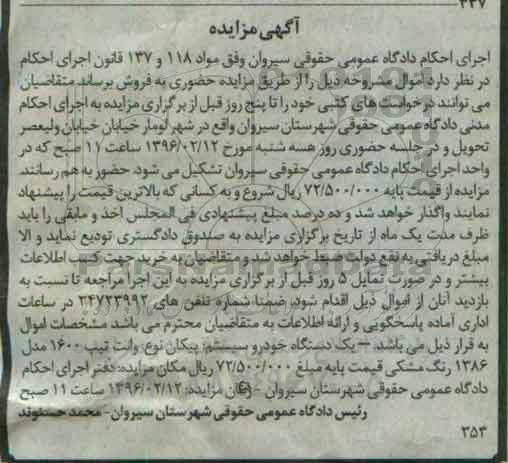 ۳۳۷
آگهی مزایده
اجرای احکام دادگاه عمومی حقوقی سیروان وفق مواد ۱۱۸ و ۱۳۷ قانون اجرای احکام
در نظر دارد اموال مشروحه ذیل را از طریق مزایده حضوری به فروش برساند متقاضیان
می توانند درخواست های کتبی خود را تا پنج روز قبل از برگزاری مزایده به اجرای احکام
مدنی دادگاه عمومی حقوقی شهرستان سیروان واقع در شهر لومار خیابان خیابان ولیعصر
تحویل و در جلسه حضوری روز هسه شنبه مورخ ۱۳۹۶/۰۲/۱۲ ساعت ۱۱ صبح که در
واحد اجرای احکام دادگاه عمومی حقوقی سیروان تشکیل می شود، حضور به هم رسانند.
مزایده از قیمت پایه ۷۲/۵۰۰/۰۰۰ ریال شروع و به کسانی که بالاترین قیمت را پیشنهاد
نمایند واگذار خواهد شد و ده درصد مبلغ پیشنهادی فی المجلس اخذ و مابقی را باید
ظرف مدت یک ماه از تاریخ برگزاری مزایده به صندوق دادگستری تودیع نماید و الا
مبلغ دریافتی به نفع دولت ضبط خواهد شد و متقاضیان به خرید جهت کسب اطلاعات
بیشتر و در صورت تمایل ۵ روز قبل از برگزاری مزایده به این اجرا مراجعه تا نسبت به
بازدید آنان از اموال ذیل اقدام شود، ضمنا شماره تلفن های ۳۴۷۲۳۹۹۲ در ساعات
اداری آماده پاسخگویی و ارائه اطلاعات به متقاضیان محترم می باشد مشخصات اموال
به قرار ذیل می باشد. — یک دستگاه خودرو سیستم: پیکان نوع: وانت تیپ ۱۶۰۰ مدل
۱۳۸۶ رنگ مشکی قیمت پایه مبلغ ۷۲/۵۰۰/۰۰۰ ریال مکان مزایده: دفتر اجرای احکام
دادگاه عمومی حقوقی شهرستان سیروان - زمان مزایده: ۱۳۹۶/۰۲/۱۲ ساعت ۱۱ صبح
رئیس دادگاه عمومی حقوقی شهرستان سیروان- محمد حسنوند
۳۵۳